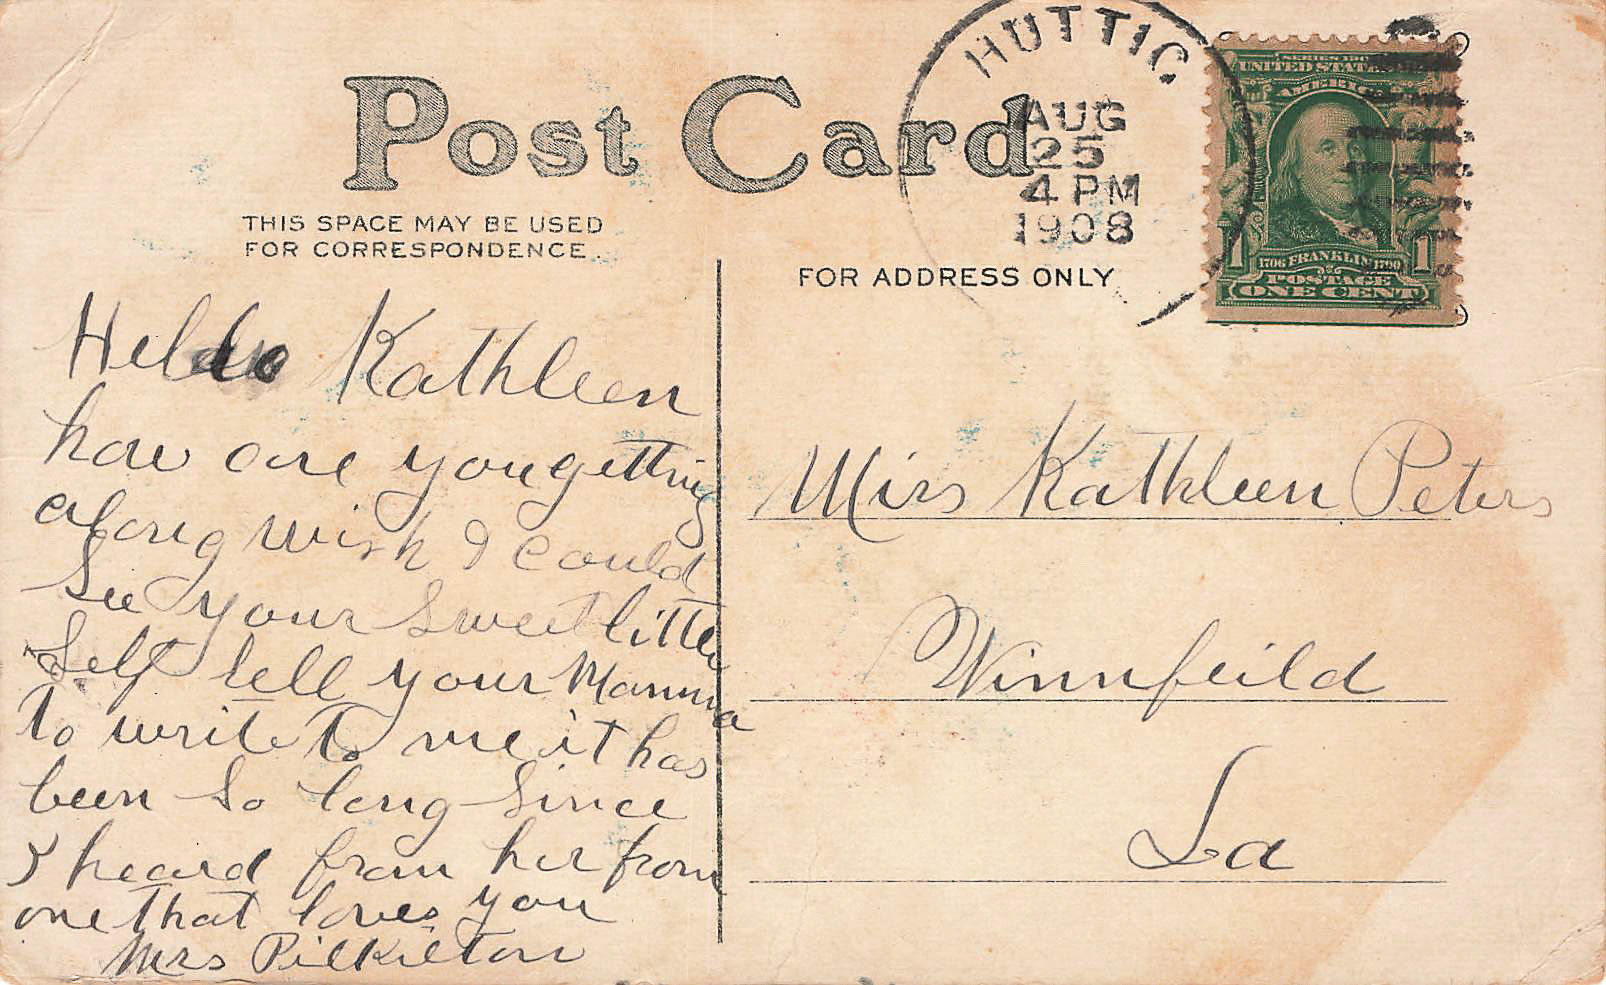 Post Card
THIS SPACE MAY BE USED
FOR CORRESPONDENCE.
FOR ADDRESS ONLY
HUTTIG
AUG
25
4 PM
1908
UNITED STATES
AMERICA
1 1
1706 FRANKLIN 1790
POSTAGE
ONE CENT
Hello Kathleen
how are you getting
along wish I could
See your Sweet little
Self tell your Mamma
to write to me it has
been So long Since
I heard from her from
one that loves you
Mrs Pilkilton
Miss Kathleen Peters
Winnfeild
La